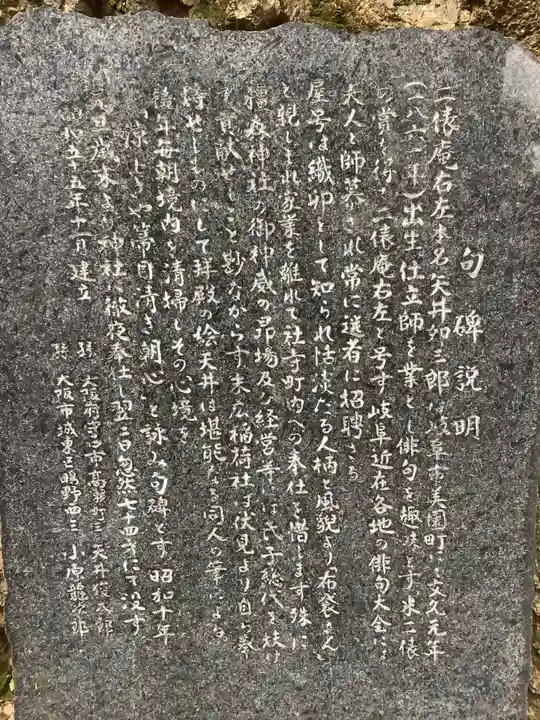 句碑説明
二俵庵右左本名矢井弥三郎は岐阜市美園町にて文久元年
(一八六一年)出生仕立師を業とし俳句を趣味とす米二俵
の賞を得て二俵庵右左と号す岐阜近在各地の俳句大会に
夫人と師慕され常に選者に招聘さる
屋号は織卯として知られ恬淡たる人柄と風貌より「布袋さん」
と親しまれ家業を離れて社寺町内への奉仕を惜します殊に
橿森神社の御神威の昂揚及び経営等には氏子総代を扶け
て貢献せしこと尠なからす末広稲荷社は伏見より自ら奉
持せしものにして拝殿の絵天井は堪能なる同人の筆による
後年毎朝境内を清掃しその心境を
「涼しさや箒目清き朝心」と詠み句碑とす 昭和十年
一月一日歳末より神社に徹夜奉仕し翌二日忽然七十四才にて没す
昭和五十五年十一月 建立
孫 大阪府守口市高瀬町三 天井俊次郎
孫 大阪市城東区鴫野西三 小原龍次郎